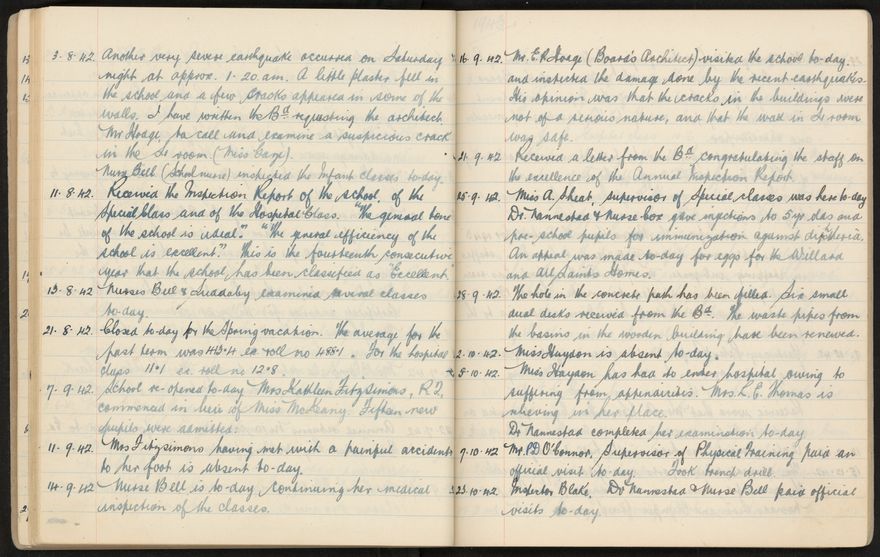 3·8·42 Another very severe earthquake occurred on Saturday
night at approx. 1-20 a.m. A little plaster fell in
the school and a few cracks appeared in some of the
walls. I have written the Bd requesting the architect
Mr Hoage to call and examine a suspicious crack
in the S1 room (Miss
Nurse Bell (School nurse) inspected the Infant classes to-day.
11·8·42. Received the Inspection Report of the school, of the
Special Class and of the Hospital Class. "The general tone
of the school is ideal". "The general efficiency of the
school is excellent." This is the fourteenth consecutive
year that the school has been classified as Excellent.
13·8·42 Nurses Bell & Luddaby examined several classes
to-day.
21·8·42. Closed to-day for the Spring vacation. The average for the
past term was 443·4 ex roll no 488·1. For the hospital
class 11·1 ex. roll no 12·8.
7·9·42. School re-opened to-day Mrs Kathleen Fitzsimons, R.T.,
commenced in lieu of Miss McKeany. Fifteen new
pupils were admitted.
11·9·42. Mrs Fitzsimons having met with a painful accident
to her foot is absent to-day.
14·9·42 Nurse Bell is to-day continuing her medical
inspection of the classes.
1942
16·9·42. Mr. E.P. Hoage (Board's Architect) visited the school to-day.
and inspected the damage done by the recent earthquakes.
His opinion was that the cracks in the buildings were
not of a serious nature, and that the wall in S1 room
was safe.
21·9·42 Received a letter from the Bd congratulating the staff on
the excellence of the Annual Inspection Report.
25·9·42. Miss A. Sheat, supervisor of Special classes was here to-day
Dr. Nannestad & Nurse Cox gave injections to 5 yr. olds and
pre-school pupils for immunization against diphtheria.
An appeal was made to-day for eggs for the Willard
and All Saints Homes.
28·9·42. The hole in the concrete path has been filled. Six small
dual desks received from the Bd. The waste pipes from
the basins in the wooden building have been renewed.
2·10·42. Miss Haydon is absent to-day.
5·10·42. Miss Haydon has had to enter hospital owing to
suffering from appendicitis. Mrs. L. E. Thomas is
relieving in her place.
Dr Nannestad completed her examination to-day
7·10·42 Mr. P.D. O'Connor, Supervisor of Physical Training paid an
official visit to-day. Took trench drill.
23·10·42. Inspector Blake, Dr Nannestad & Nurse Bell paid official
visits to-day.